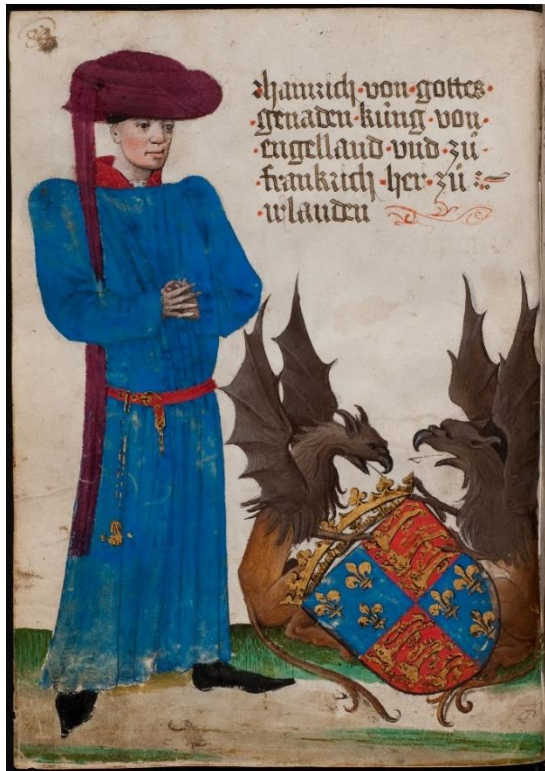 84
hainrich · von · gottes ·
· genaden · küng · von ·
· engelland · vnd · zů ·
· frankrich · her · zů :~
· irlanden